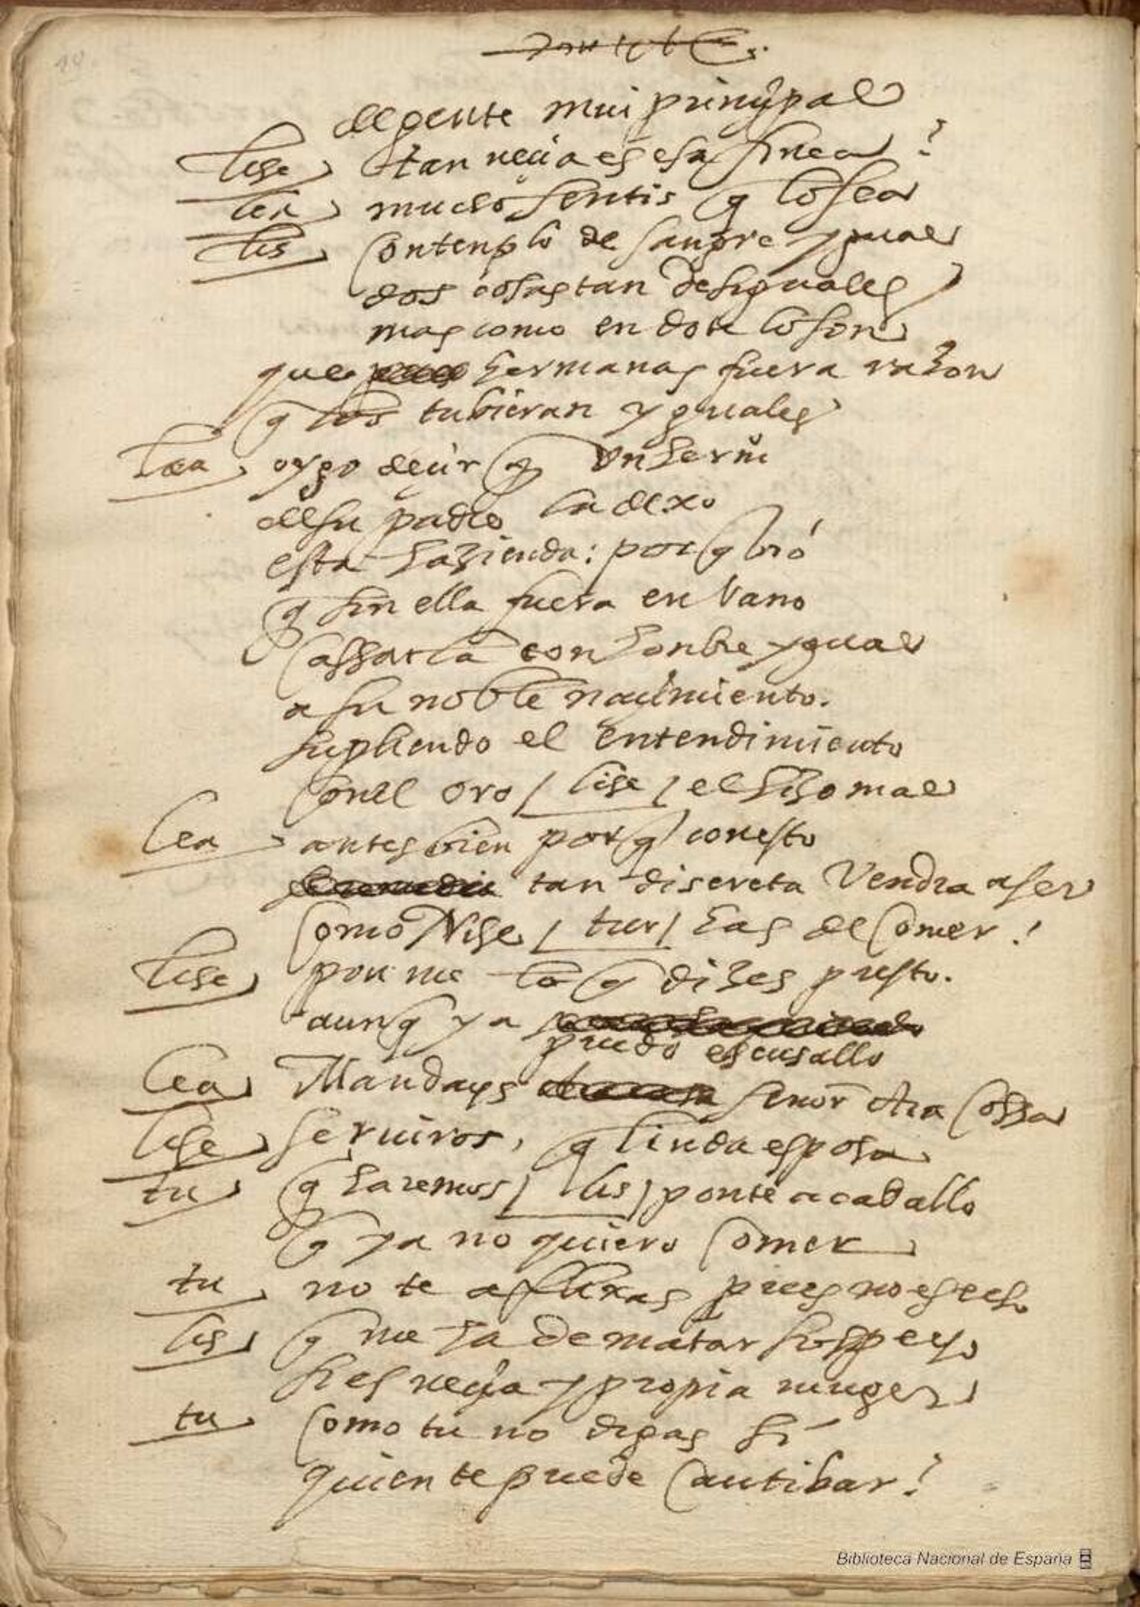 de gente mui prinçipal
lise tan neçia es esa finea?
lea mucho sentis q lo sea
lis contenplo de sangre ygual
dos cosas tan desiguales
mas como en dote lo son
que hermanas fuera razon
q los tubieran yguales
lea oygo deçir q un herno
de su padre la dexo
esta hazienda: porq vió
q sin ella fuera en vano
cassarla con honbre ygual
a su noble naçimiento.
supliendo el entendimiento
con el oro / lise / el hizo mal
lea antes bien porq con esto
tan discreta vendra a ser
como Nise / tur / has de comer!
lise pon me lo q dizes presto.
aunq ya
puedo escusallo
lea Mandays señor otra cossa
lise serviros, q linda esposa
tu q haremos / lis / ponte a caballo
q ya no quiero comer
tu no te aflixas pues no es hecho
lis q me ha de matar sospecho
si es neçia y propia muger
tu como tu no digas si
quien te puede cautibar?
Biblioteca Nacional de España